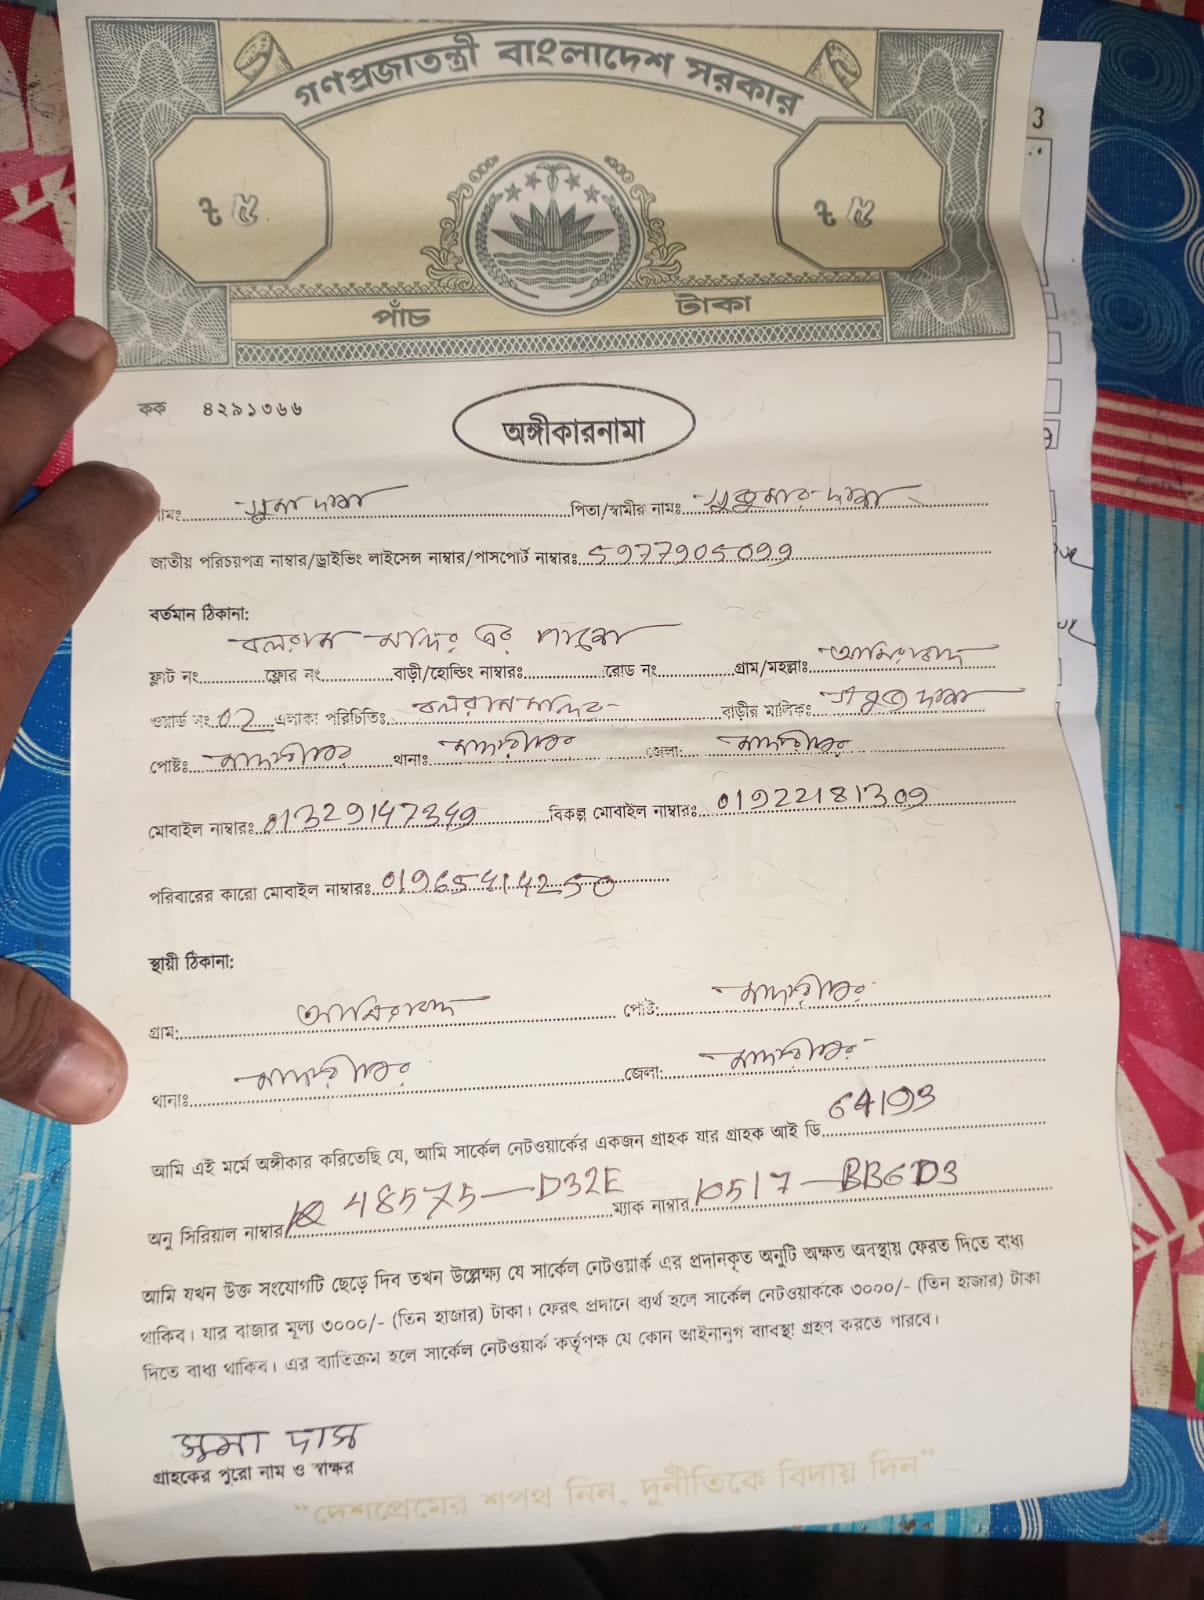 গণপ্রজাতন্ত্রী বাংলাদেশ সরকার
৳ ৫ ৳ ৫
পাঁচ টাকা
3
কক ৪২৯১৩৬৬
অঙ্গীকারনামা
নামঃ সুমা দাস পিতা/স্বামীর নামঃ সুকুমার দাস
জাতীয় পরিচয়পত্র নাম্বার/ড্রাইভিং লাইসেন্স নাম্বার/পাসপোর্ট নাম্বারঃ 5977905099
বর্তমান ঠিকানা:
বলরাম মন্দির এর পাশে
ফ্লাট নং ফ্লোর নং বাড়ী/হোল্ডিং নাম্বারঃ রোড নং গ্রাম/মহল্লাঃ আমিরাবাদ
ওয়ার্ড নং 02 এলাকা পরিচিতিঃ বলরাম মন্দির বাড়ীর মালিকঃ দাস
পোষ্টঃ মাদারীপুর থানাঃ মাদারীপুর জেলা: মাদারীপুর
মোবাইল নাম্বারঃ 01329147349 বিকল্প মোবাইল নাম্বারঃ 01922181309
পরিবারের কারো মোবাইল নাম্বারঃ 01965414250
স্থায়ী ঠিকানা:
গ্রাম: আমিরাবাদ পোষ্ট: মাদারীপুর
থানাঃ মাদারীপুর জেলা: মাদারীপুর
আমি এই মর্মে অঙ্গীকার করিতেছি যে, আমি সার্কেল নেটওয়ার্কের একজন গ্রাহক যার গ্রাহক আই ডি 64193
অনু সিরিয়াল নাম্বার 48575-D32E ম্যাক নাম্বার 10517-BB6D3
আমি যখন উক্ত সংযোগটি ছেড়ে দিব তখন উল্লেক্ষ্য যে সার্কেল নেটওয়ার্ক এর প্রদানকৃত অনুটি অক্ষত অবস্থায় ফেরত দিতে বাধ্য
থাকিব। যার বাজার মূল্য ৩০০০/- (তিন হাজার) টাকা। ফেরৎ প্রদানে ব্যর্থ হলে সার্কেল নেটওয়ার্ককে ৩০০০/- (তিন হাজার) টাকা
দিতে বাধ্য থাকিব। এর ব্যতিক্রম হলে সার্কেল নেটওয়ার্ক কর্তৃপক্ষ যে কোন আইনানুগ ব্যাবস্থা গ্রহণ করতে পারবে।
সুমা দাস
গ্রাহকের পুরো নাম ও স্বাক্ষর
“দেশপ্রেমের শপথ নিন, দুর্নীতিকে বিদায় দিন”